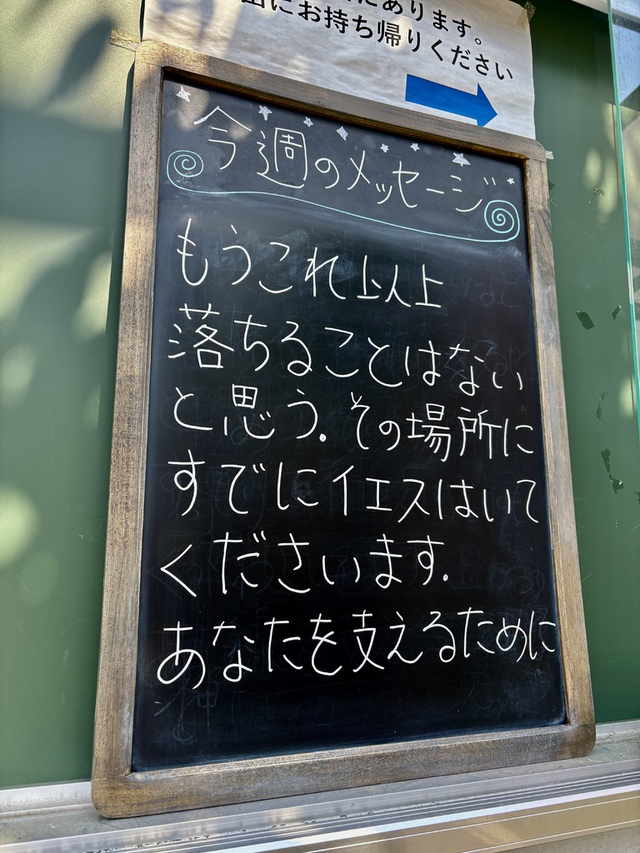 にあります。
由にお持ち帰りください
今週のメッセージ
もうこれ以上
落ちることはない
と思う。その場所に
すでにイエスはいて
くださいます.
あなたを支えるために